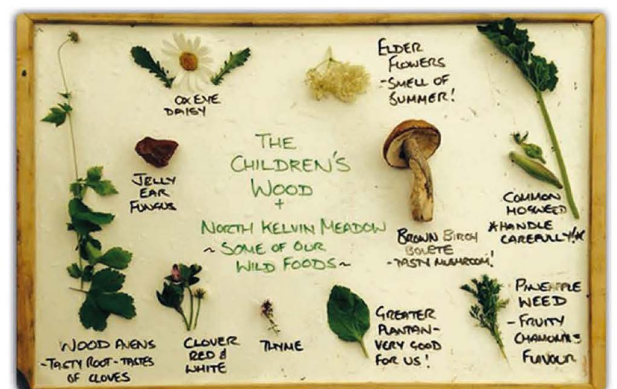 OX EYE
DAISY
ELDER
FLOWERS
- SMELL OF
SUMMER!
JELLY
EAR
FUNGUS
THE
CHILDREN'S
WOOD
+
NORTH KELVIN MEADOW
~ SOME OF OUR
WILD FOODS ~
BROWN BIRCH
BOLETE
- TASTY MUSHROOM!
COMMON
HOGWEED
* HANDLE
CAREFULLY! *
WOOD AVENS
- TASTY ROOT - TASTES
OF CLOVES
CLOVER
RED &
WHITE
THYME
GREATER
PLANTAN -
VERY GOOD
FOR US!
PINEAPPLE
WEED
- FRUITY
CHAMOMILE
FLAVOUR